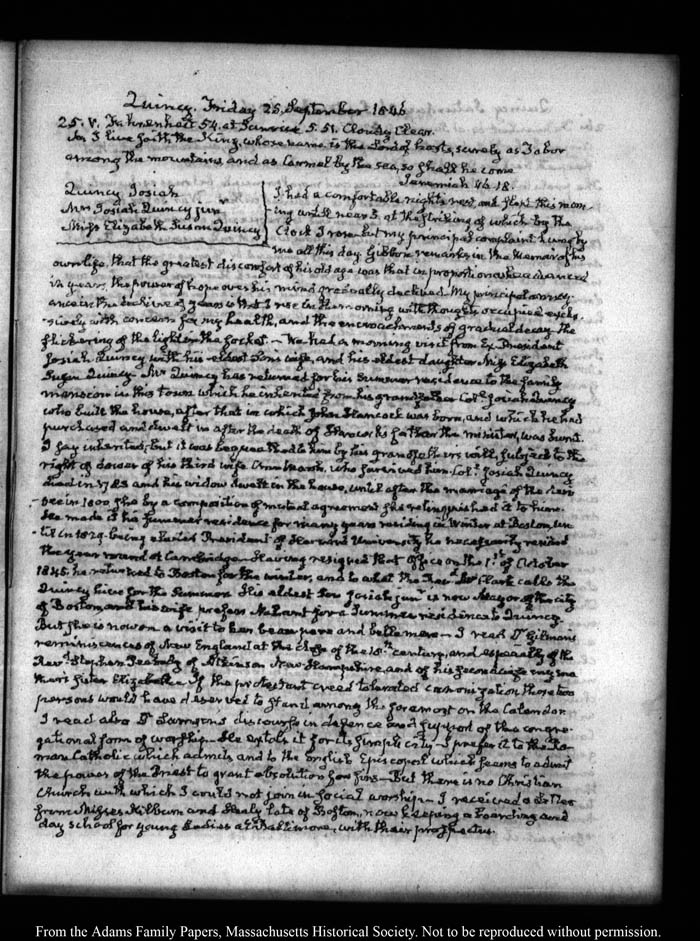 Quincy. Friday 25. September 1846
25. V. Fahrenheit 54. at Sunrise 5.51. Cloudy Clear.
As I live saith the King, whose name is the Lord of hosts, surely as Tabor
among the mountains, and as Carmel by the sea, so shall he come
Jeremiah 46. 18.
Quincy Josiah
Mrs Josiah Quincy junr
Miss Elizabeth Susan Quincy
I had a comfortable nights rest and slept this morn-
ing until near 5. at the striking of which by the
Clock I rose but my principal complaint hung by
me all this day. Gibbon remarks in the Memoir of his
own life, that the greatest discomfort of his old age was that in proportion as he advanced
in years, the power of hope over his mind gradually declined. My principal annoy-
ance in the decline of years is that I rise in the morning with thoughts occupied exclu-
sively with concern for my health, and the encroachments of gradual decay. The
flickering of the light in the socket. — We had a morning visit from Ex President
Josiah Quincy with his eldest Son's wife, and his eldest daughter Miss Elizabeth
Susan Quincy. Mr Quincy has returned for his Summer residence to the family
mansion in this town which he inherited from his grandfather Coll. Josiah Quincy
who built the house, after that in which John Hancock was born, and which he had
purchased and dwelt in after the death of Hancock's father the minister, was burnt.
I say inherited, but it was bequeathed to him by his grandfathers will, subject to the
right of dower of his third wife Ann Marsh, who survived him. Coll. Josiah Quincy
died in 1783 and his widow dwelt in the house, until after the marriage of the devi-
see in 1800 she by a composition of mutual agreement she relinquished it to him.
He made it his Summer residence for many years residing in Winter at Boston, un-
til in 1829. being elected President of Harvard University he necessarily resided
the year round at Cambridge. Having resigned that Office on the 1st. of October
1845. he returned to Boston for the winter, and to what the Revd. Mr Clark calls the
Quincy hive for the Summer. His eldest Son Josiah junr is now Mayor of the city
of Boston, and his wife prefers Nahant for a Summer residence to Quincy.
But she is now on a visit to her beau pere and belle mere — I read Dr Gilman's
reminiscences of New England at the Close of the 18th. century, and especially of the
Revd. Stephen Peabody of Atkinson New-Hampshire, and of his second wife my mo-
thers sister Elizabeth. If the protestant creed tolerated canonization those two
persons would have deserved to stand among the foremost on the Calendar.
I read also Dr Lamson's discourse in defence and support of the congre-
gational form of worship. He extols it for its simplicity — I prefer it to the Ro-
man Catholic which admits and to the English Episcopal which seems to admit
the power of the Priest to grant absolution for sins — But there is no Christian
Church with which I could not join in social worship — I received a Letter
from Misses Kilburn and Healy late of Boston, now keeping a boarding and
day school for young Ladies at Baltimore, with their prospectus.
From the Adams Family Papers, Massachusetts Historical Society. Not to be reproduced without permission.